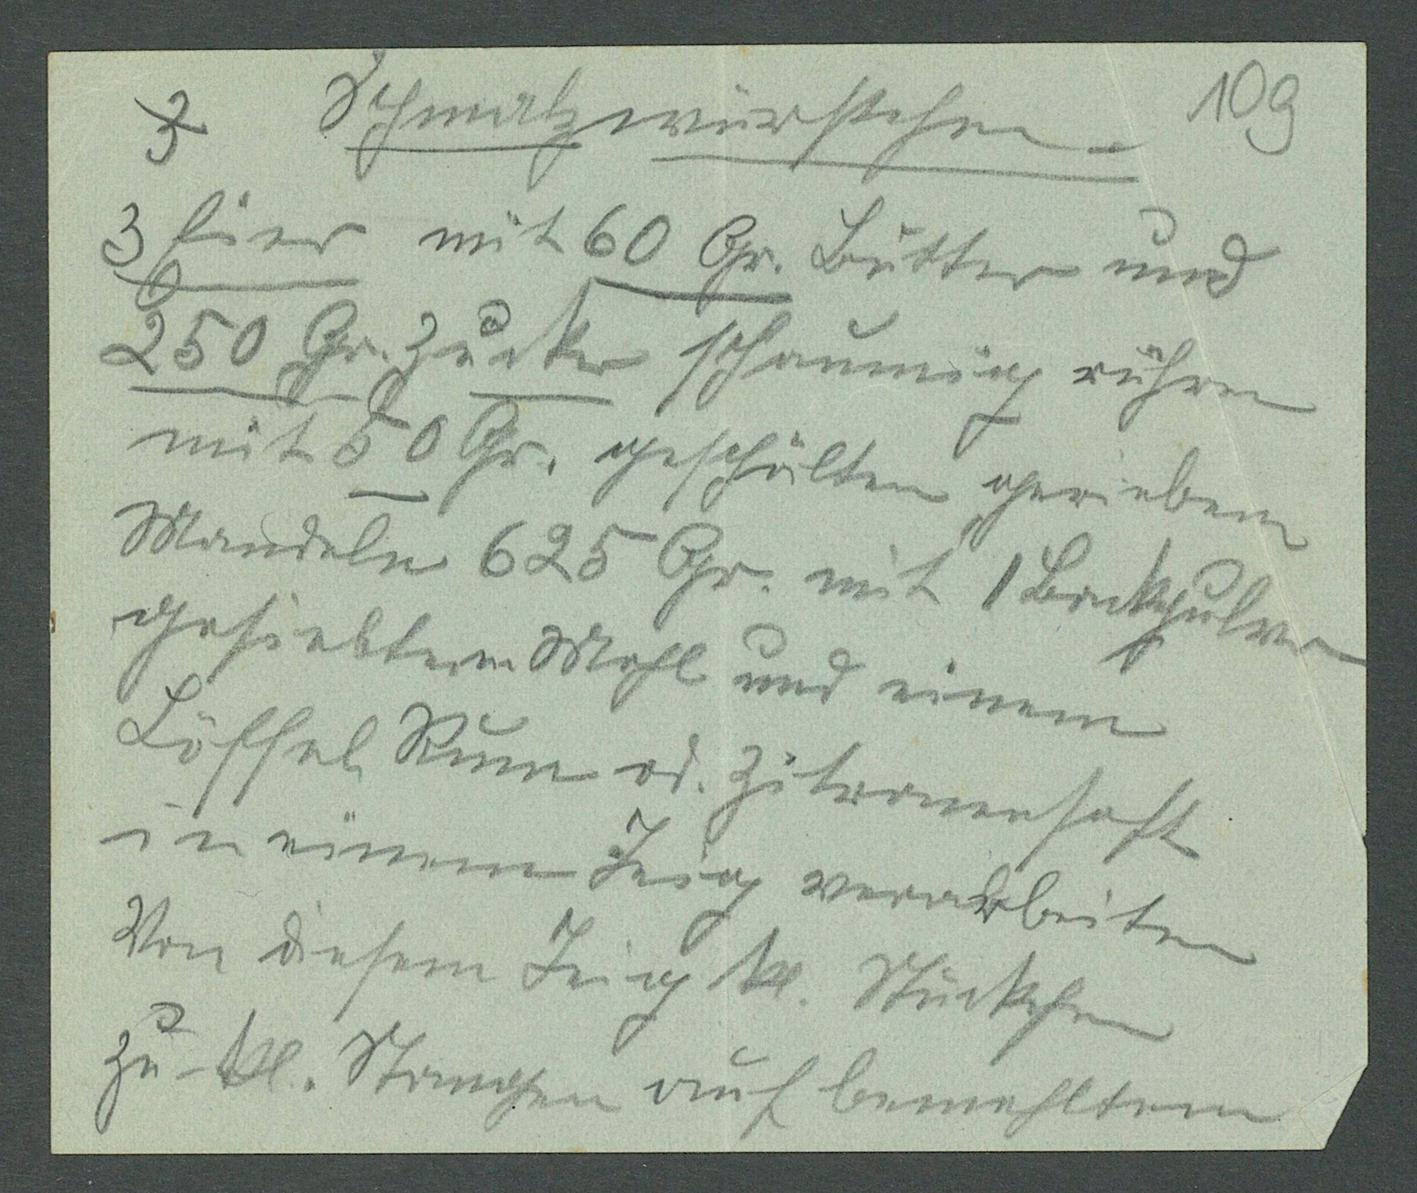 3 Schmalzwürstchen 109
3 Eier mit 60 Gr. Butter und
250 Gr. Zucker schaumig rühren
mit 50 Gr. geschälten geriebenen
Mandeln 625 Gr. mit 1 Backpulver
gesiebtem Mehl und einem
Löffel Rum od. Zitronensaft
in einem Teig verarbeiten
Von diesem Teig kl. Stückchen
zu kl. Stangen auf bemehltem